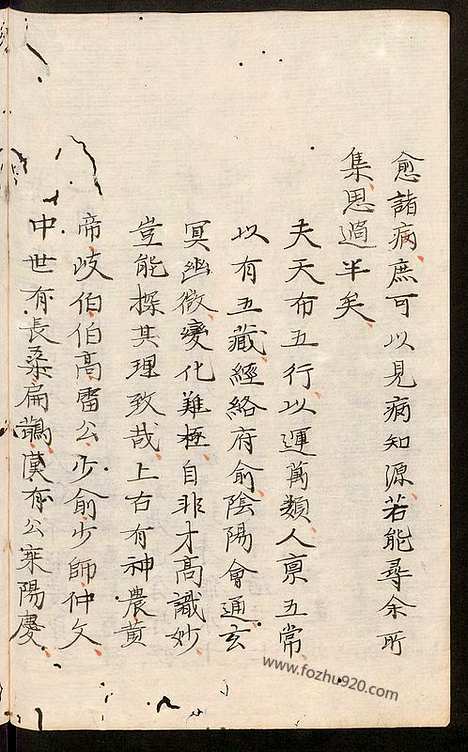 愈諸病庶可以見病知源若能尋余所
集思過半矣
夫天布五行以運萬類人稟五常
以有五藏經絡府俞陰陽會通玄
冥幽微變化難極自非才高識妙
豈能探其理致哉上古有神農黃
帝岐伯伯高雷公少俞少師仲文
中世有長桑扁鵲漢有公乘陽慶
www.fozhu920.com